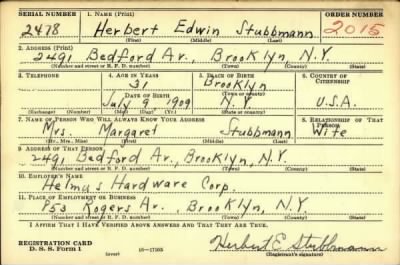 SERIAL NUMBER 1. NAME (Print) ORDER NUMBER
2478 Herbert Edwin Stubbmann 2015
(First) (Middle) (Last)
2. ADDRESS (Print)
2491 Bedford Av., Brooklyn, N.Y.
(Number and street or R. F. D. number) (Town) (County) (State)
3. TELEPHONE 4. AGE IN YEARS 5. PLACE OF BIRTH 6. COUNTRY OF CITIZENSHIP
31 Brooklyn
(Town or county)
DATE OF BIRTH
July 9 1909 N.Y. U.S.A.
(Exchange) (Number) (Mo.) (Day) (Yr.) (State or country)
7. NAME OF PERSON WHO WILL ALWAYS KNOW YOUR ADDRESS 8. RELATIONSHIP OF THAT PERSON
Mrs. Margaret Stubbmann Wife
(Mr., Mrs., Miss) (First) (Middle) (Last)
9. ADDRESS OF THAT PERSON
2491 Bedford Av., Brooklyn, N.Y.
(Number and street or R. F. D. number) (Town) (County) (State)
10. EMPLOYER'S NAME
Helmus Hardware Corp.
11. PLACE OF EMPLOYMENT OR BUSINESS
853 Rogers Av., Brooklyn, N.Y.
(Number and street or R. F. D. number) (Town) (County) (State)
I AFFIRM THAT I HAVE VERIFIED ABOVE ANSWERS AND THAT THEY ARE TRUE.
REGISTRATION CARD
D. S. S. Form 1 (over) 16—17105 Herbert E. Stubbmann
(Registrant's signature)